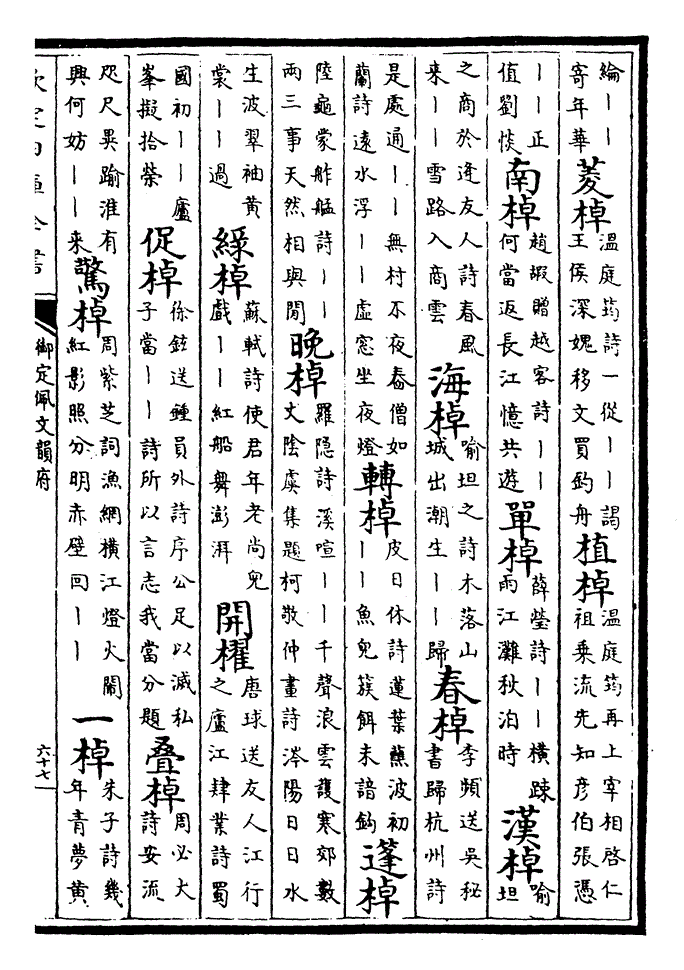 綸丨丨寄年華菱棹溫庭筠詩一從丨丨謁王侯深媿移文買釣舟植棹溫庭筠再上宰相啓仁祖乗流先知彦伯張憑
丨丨正值劉惔南棹趙嘏贈越客詩丨丨何當返長江憶共遊單棹薛瑩詩丨丨横踈雨江灘秋泊時漢棹喻坦
之商於逢友人詩春風来丨丨雪路入商雲海棹喻坦之詩木落山城出潮生丨丨歸春棹李頻送吴秘書歸杭州詩
是處通丨丨無村不夜舂僧如蘭詩遠水浮丨丨虚窓坐夜燈轉棹皮日休詩蓮葉蘸波初丨丨魚兒簇餌未諳鈎蓬棹
陸龜蒙舴艋詩丨丨兩三事天然相與閒晚棹羅隐詩溪喧丨丨千聲浪雲護寒郊數丈陰虞集題柯敬仲畫詩涔陽日日水
生波翠袖黄裳丨丨過綵棹蘇軾詩使君年老尚兒戲丨丨紅船舞澎湃開櫂唐球送友人江行之廬江肄業詩蜀
國初丨丨廬峯擬拾榮促棹徐鉉送鍾員外詩序公足以滅私子當丨丨詩所以言志我當分題叠棹周必大詩安流
咫尺異踰淮有興何妨丨丨来驚棹周紫芝詞漁網横江燈火鬧紅影照分明赤壁囘丨丨一棹朱子詩幾年青夢黄
欽定四庫全書
御定佩文韻府
六十七